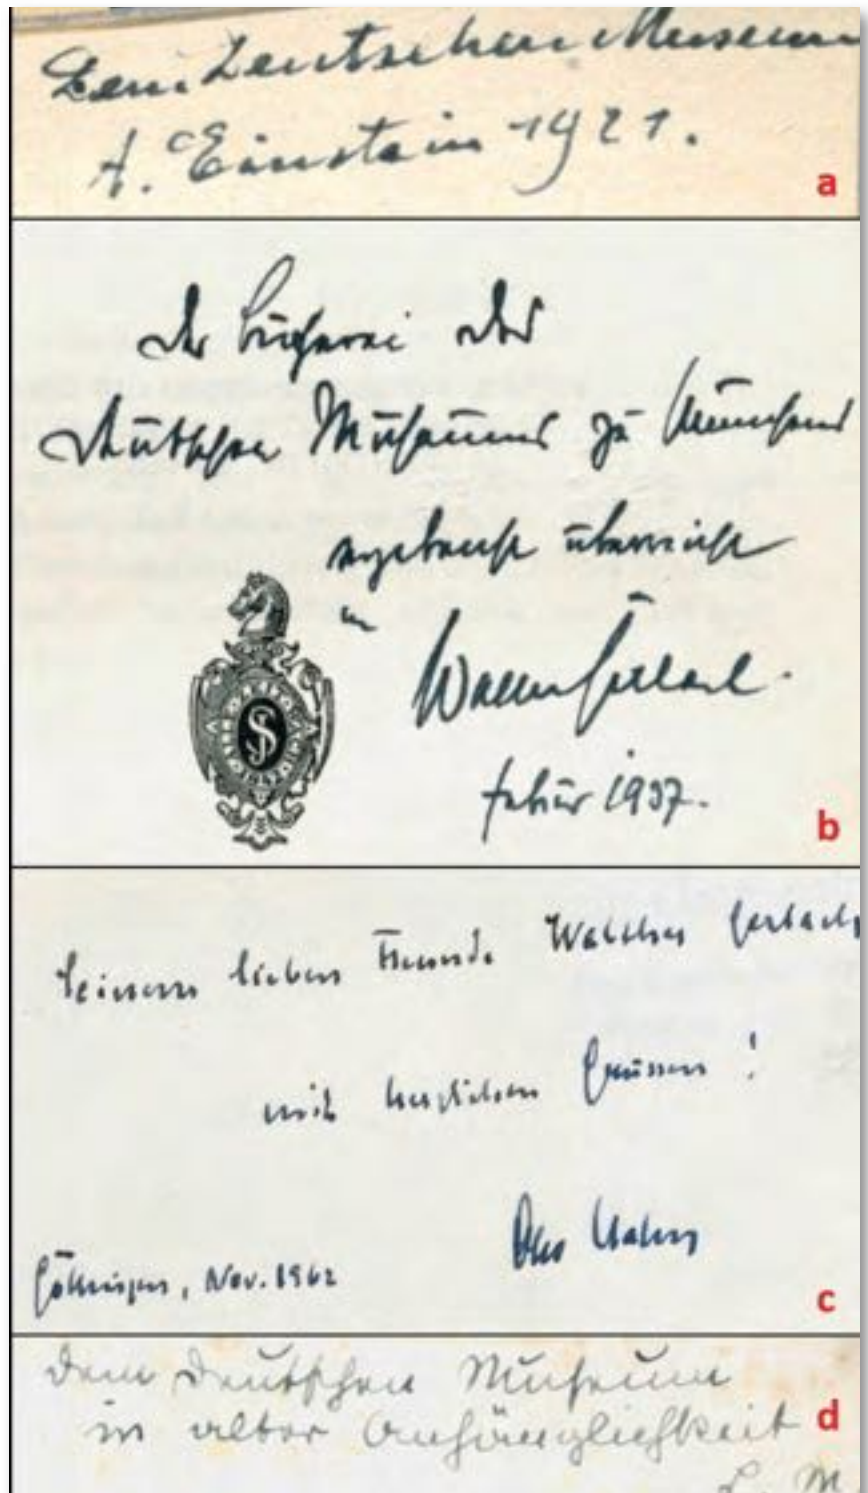 Dem Deutschen Museum
A. Einstein 1921.
a
Der Bücherei des
Deutschen Museums zu München
ergebenst überreicht
Walther Gerlach.
Februar 1937.
b
Seinem lieben Freunde Walther Gerlach
mit herzlichen Grüssen!
Otto Hahn
Göttingen, Nov. 1962
c
Dem Deutschen Museum
in alter Anhänglichkeit
d